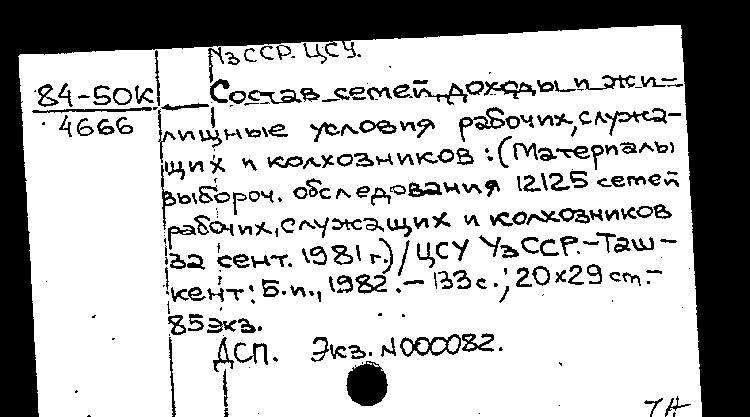 УзССР. ЦСУ.
84-50К
4666
Состав семей, доходы и жи-
лищные условия рабочих, служа-
щих и колхозников: (Материалы
выбороч. обследования 12125 семей
рабочих, служащих и колхозников
за сент. 1981 г.) / ЦСУ УзССР.-Таш-
кент: Б.и., 1982.- 133 с.; 20x29 cm.-
85 экз.
ДСП. Экз. N000082.